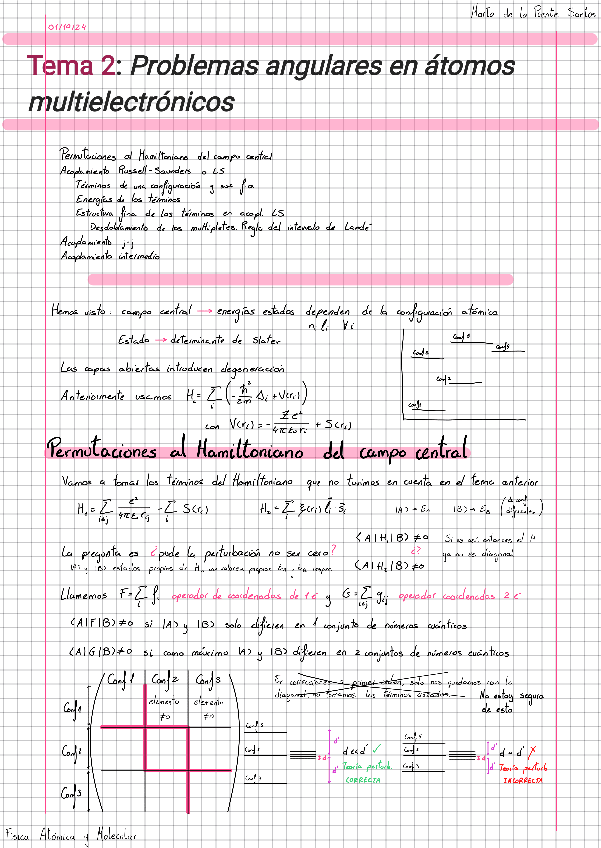 Marta de la Puente Santos
01/10/24
Tema 2: Problemas angulares en átomos
multielectrónicos
Permutaciones al Hamiltoniano del campo central
Acoplamiento Russell-Saunders o LS
Términos de una configuración y sus f.o
Energías de los términos
Estructura fina de los términos en acopl. LS
Desdoblamiento de los multipletes. Regla del intervalo de Landé
Acoplamiento j-j
Acoplamiento intermedio
Hemos visto: campo central → energías estados dependen de la configuración atómica
n li ∀i
Estado → determinante de Slater
Las capas abiertas introducen degeneración
Anteriormente usamos H₀ = Σᵢ (-ħ²/2m Δᵢ + V(rᵢ))
con V(rᵢ) = - Z e²/4πε₀rᵢ + S(rᵢ)
Conf 5
Conf 4
Conf 3
Conf 2
Conf 1
Permutaciones al Hamiltoniano del campo central
Vamos a tomar los términos del Hamiltoniano que no tuvimos en cuenta en el tema anterior
H₁ = Σ e²/4πε₀rᵢⱼ - Σᵢ S(rᵢ) H₂ = Σᵢ ξ(rᵢ) l⃗ᵢ s⃗ᵢ |A⟩ → E_A |B⟩ → E_B
⟨A|H₁|B⟩ ≠ 0
La pregunta es ¿puede la perturbación no ser cero? ¿? ya no es diagonal
⟨A|H₂|B⟩ ≠ 0
Llamemos F = Σᵢ fᵢ operador de coordenadas de 1 e⁻ y G = Σ gᵢⱼ operador coordenadas 2 e⁻
⟨A|F|B⟩ ≠ 0 si |A⟩ y |B⟩ solo difieren en 1 conjunto de números cuánticos
⟨A|G|B⟩ ≠ 0 si como máximo |A⟩ y |B⟩ difieren en 2 conjuntos de números cuánticos
Conf 1 Conf 2 Conf 3
Conf 1 elemento ≠0 elemento ≠0
Conf 2
Conf 3
En correcciones a primer orden, solo nos quedamos con la
diagonal, no tomamos los términos
No estoy segura
de esto
Conf 3
Conf 2
Conf 1
d'
d
d << d' ✓
Teoría perturb.
CORRECTA
Conf 3
Conf 2
Conf 1
d'
d
d'
d ~ d' ✗
Teoría perturb
INCORRECTA
Física Atómica y Molecular